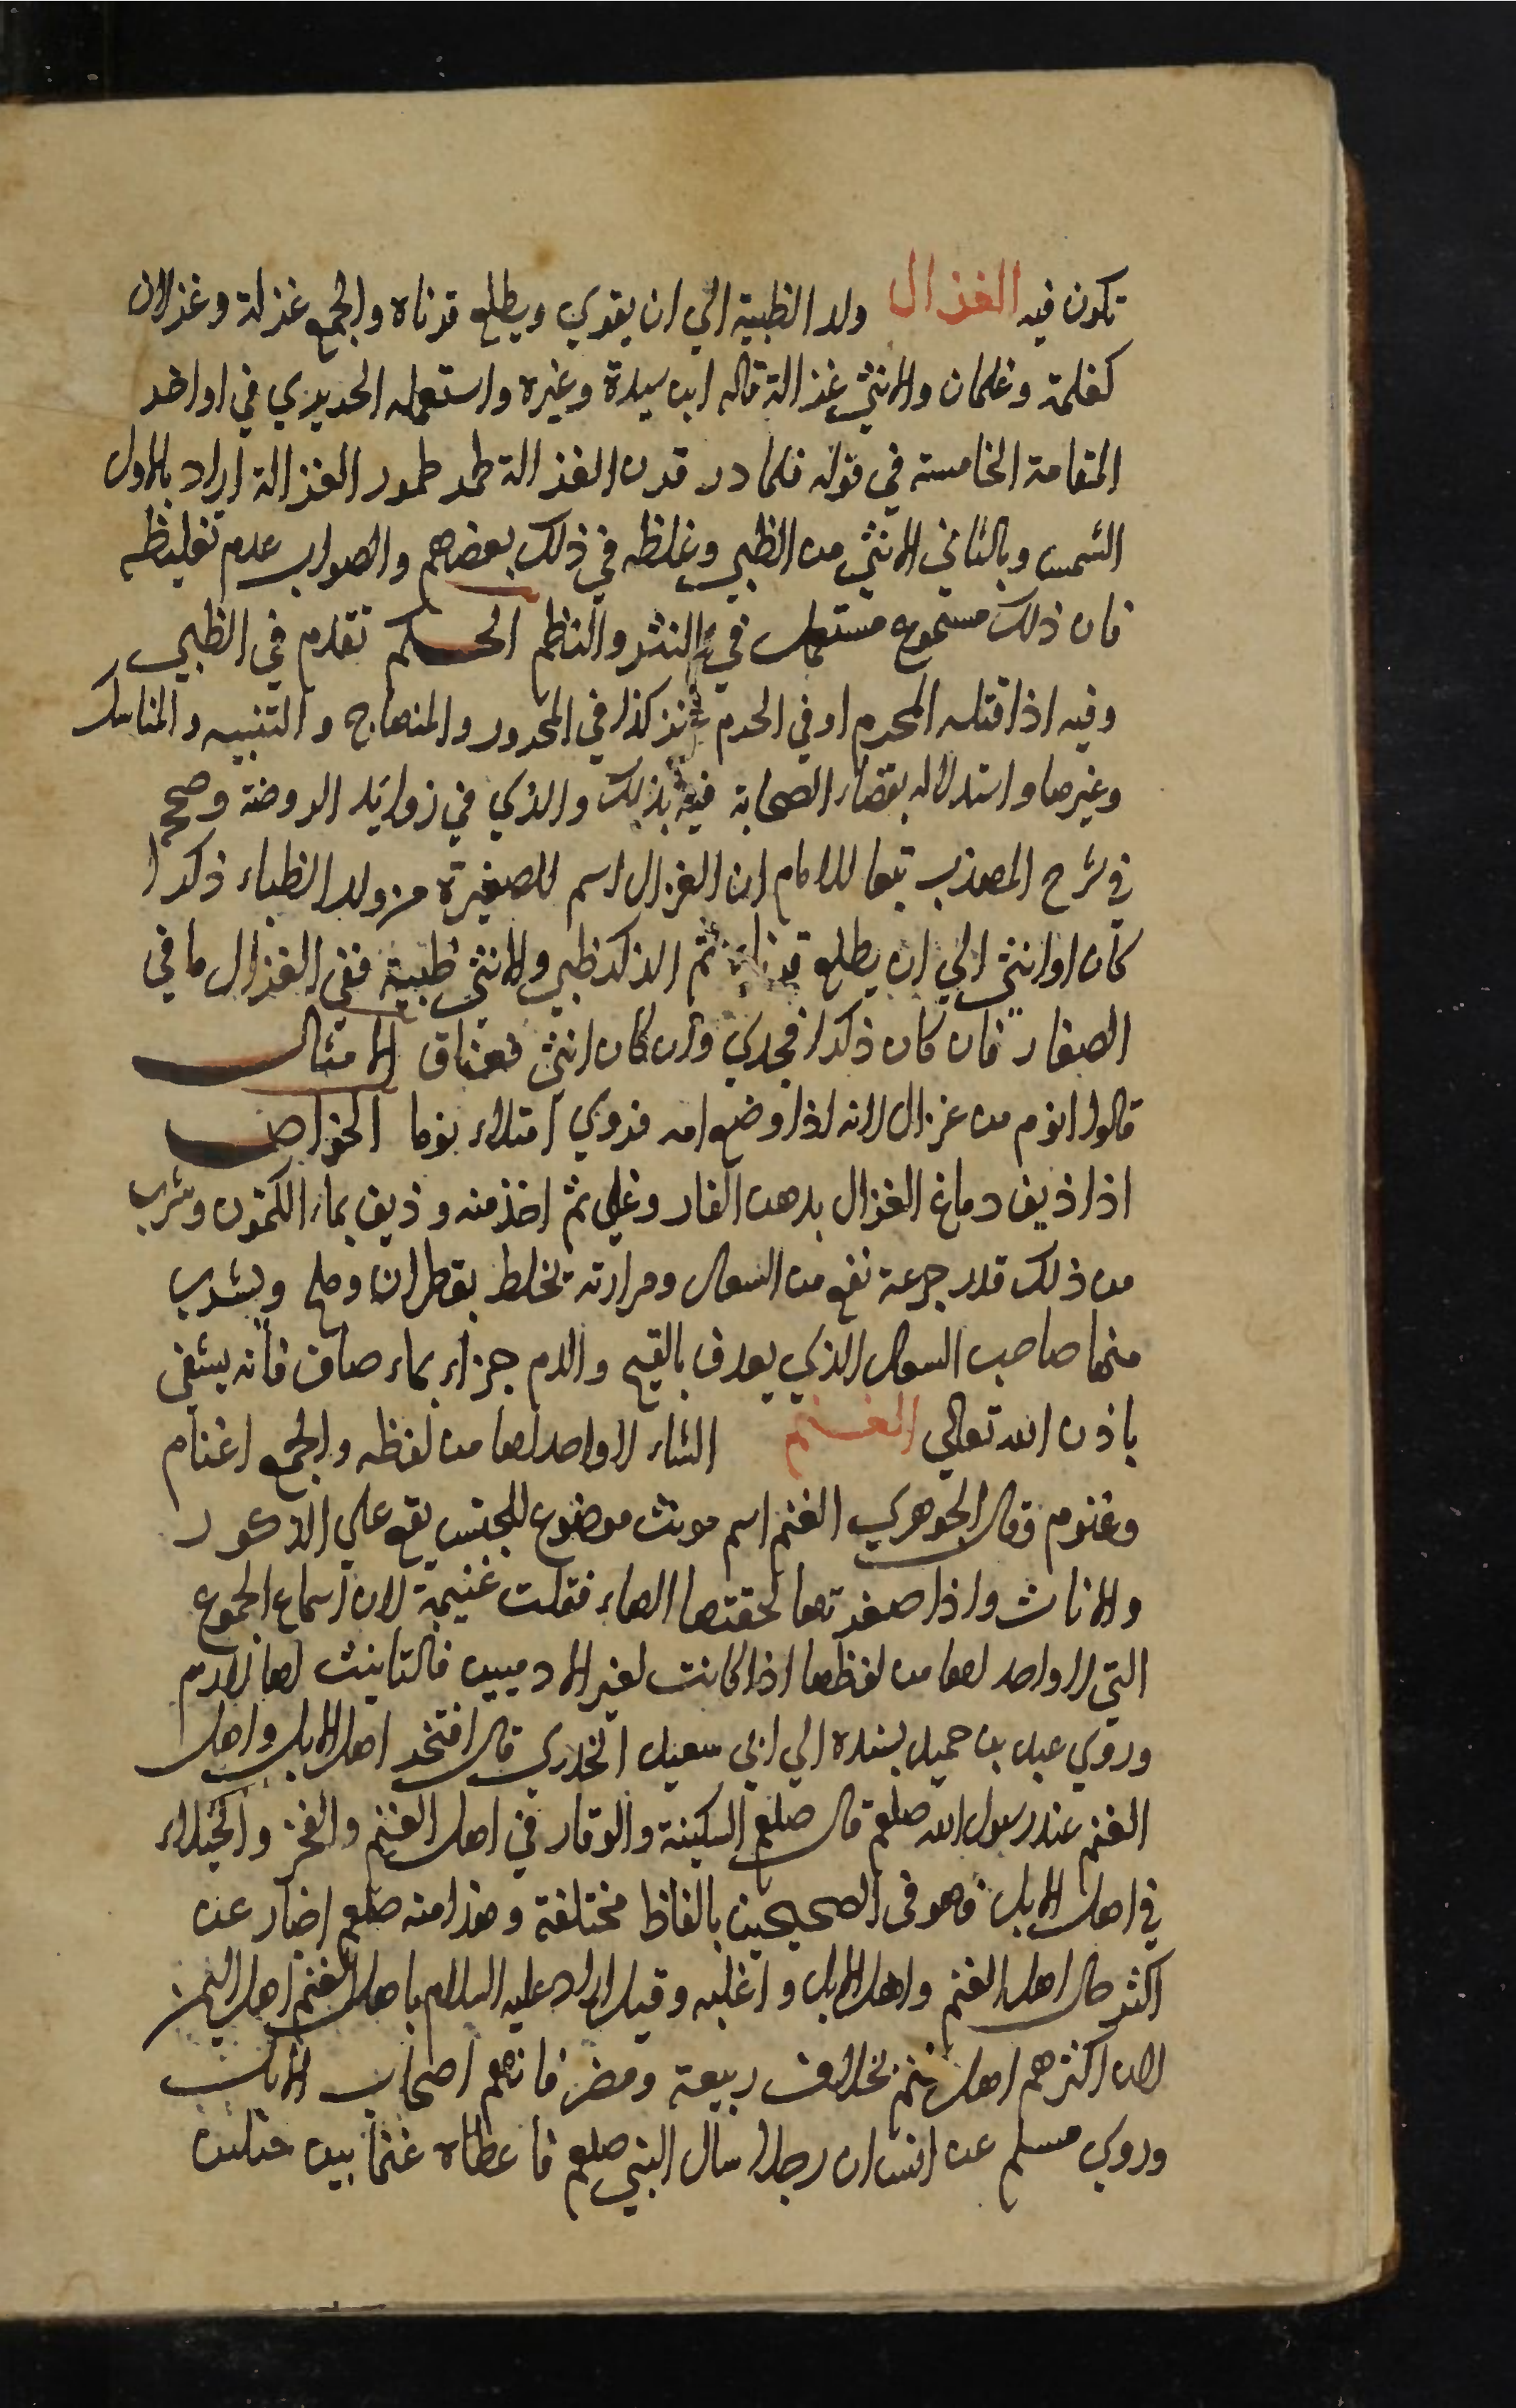 تكون فيه الغزال ولد الظبية الي ان يقوي ويطلع قرناه والجمع غزلة وغزلان
كغلمة وغلمان والانثي غزالة قاله ابن سيدة وغيره واستعمله الحريري في اواخر
المقامة الخامسة في قوله فلما در قرن الغزالة طمر طمور الغزالة اراد بالاول
الشمس وبالثاني الانثي من الظبي وغلطه في ذلك بعضهم والصواب عدم تغليطه
فان ذلك مسموع مستعمل في النثر والنظم الحكم تقدم في الظبي
وفيه اذا قتله المحرم او في الحرم عنز كذا في المحرر والمنهاج والتنبيه والمناسك
وغيرها واستدلاله بقضاء الصحابة فيه بذلك والذي في زوايد الروضة وصححه
في شرح المهذب تبعا للامام ان الغزال اسم للصغيرة من ولد الظباء ذكرا
كان او انثي الي ان يطلع قرناه ثم الذكر ظبي والانثي ظبية ففي الغزال ما في
الصغار فان كان ذكرا فجدي وان كان انثي فعناق الامثال
قالوا انوم من غزال لانه اذا رضع امه فروي امتلاء نوما الخواص
اذا ذيف دماغ الغزال بدهن الغار وغلي ثم اخذ منه وذيف بماء الكمون وشرب
من ذلك قدر جرعة نفع من السعال ومرارته تخلط بقطران وملح ويشرب
منها صاحب السعال الذي يعرف بالقيح والدم جزاء بماء صاف فانه يشفي
باذن الله تعالي الغنم الشاء لا واحد لها من لفظه والجمع اغنام
وغنوم وقال الجوهري الغنم اسم مونث موضوع للجنس يقع علي الذكور
والاناث واذا صغرتها لحقتها الهاء فقلت غنيمة لان اسماع الجموع
التي لا واحد لها من لفظها اذا كانت لغير الادميين فالتانيث لها لازم
وروي عبد بن حميد بسنده الي ابي سعيد الخدري قال افتخر اهل الابل واهل
الغنم عند رسول الله صلعم قال صلعم السكينة والوقار في اهل الغنم والفخر والخيلاء
في اهل الابل وهو في الصحيحين بالفاظ مختلفة وهذا منه صلعم اخبار عن
اكثر حال اهل الغنم واهل الابل واغلبه وقيل اراد عليه السلام باهل الغنم اهل اليمن
لان اكثرهم اهل غنم بخلاف ربيعة ومضر فانهم اصحاب الابل
وروي مسلم عن انس ان رجلا سال النبي صلعم فاعطاه غنما بين جبلين